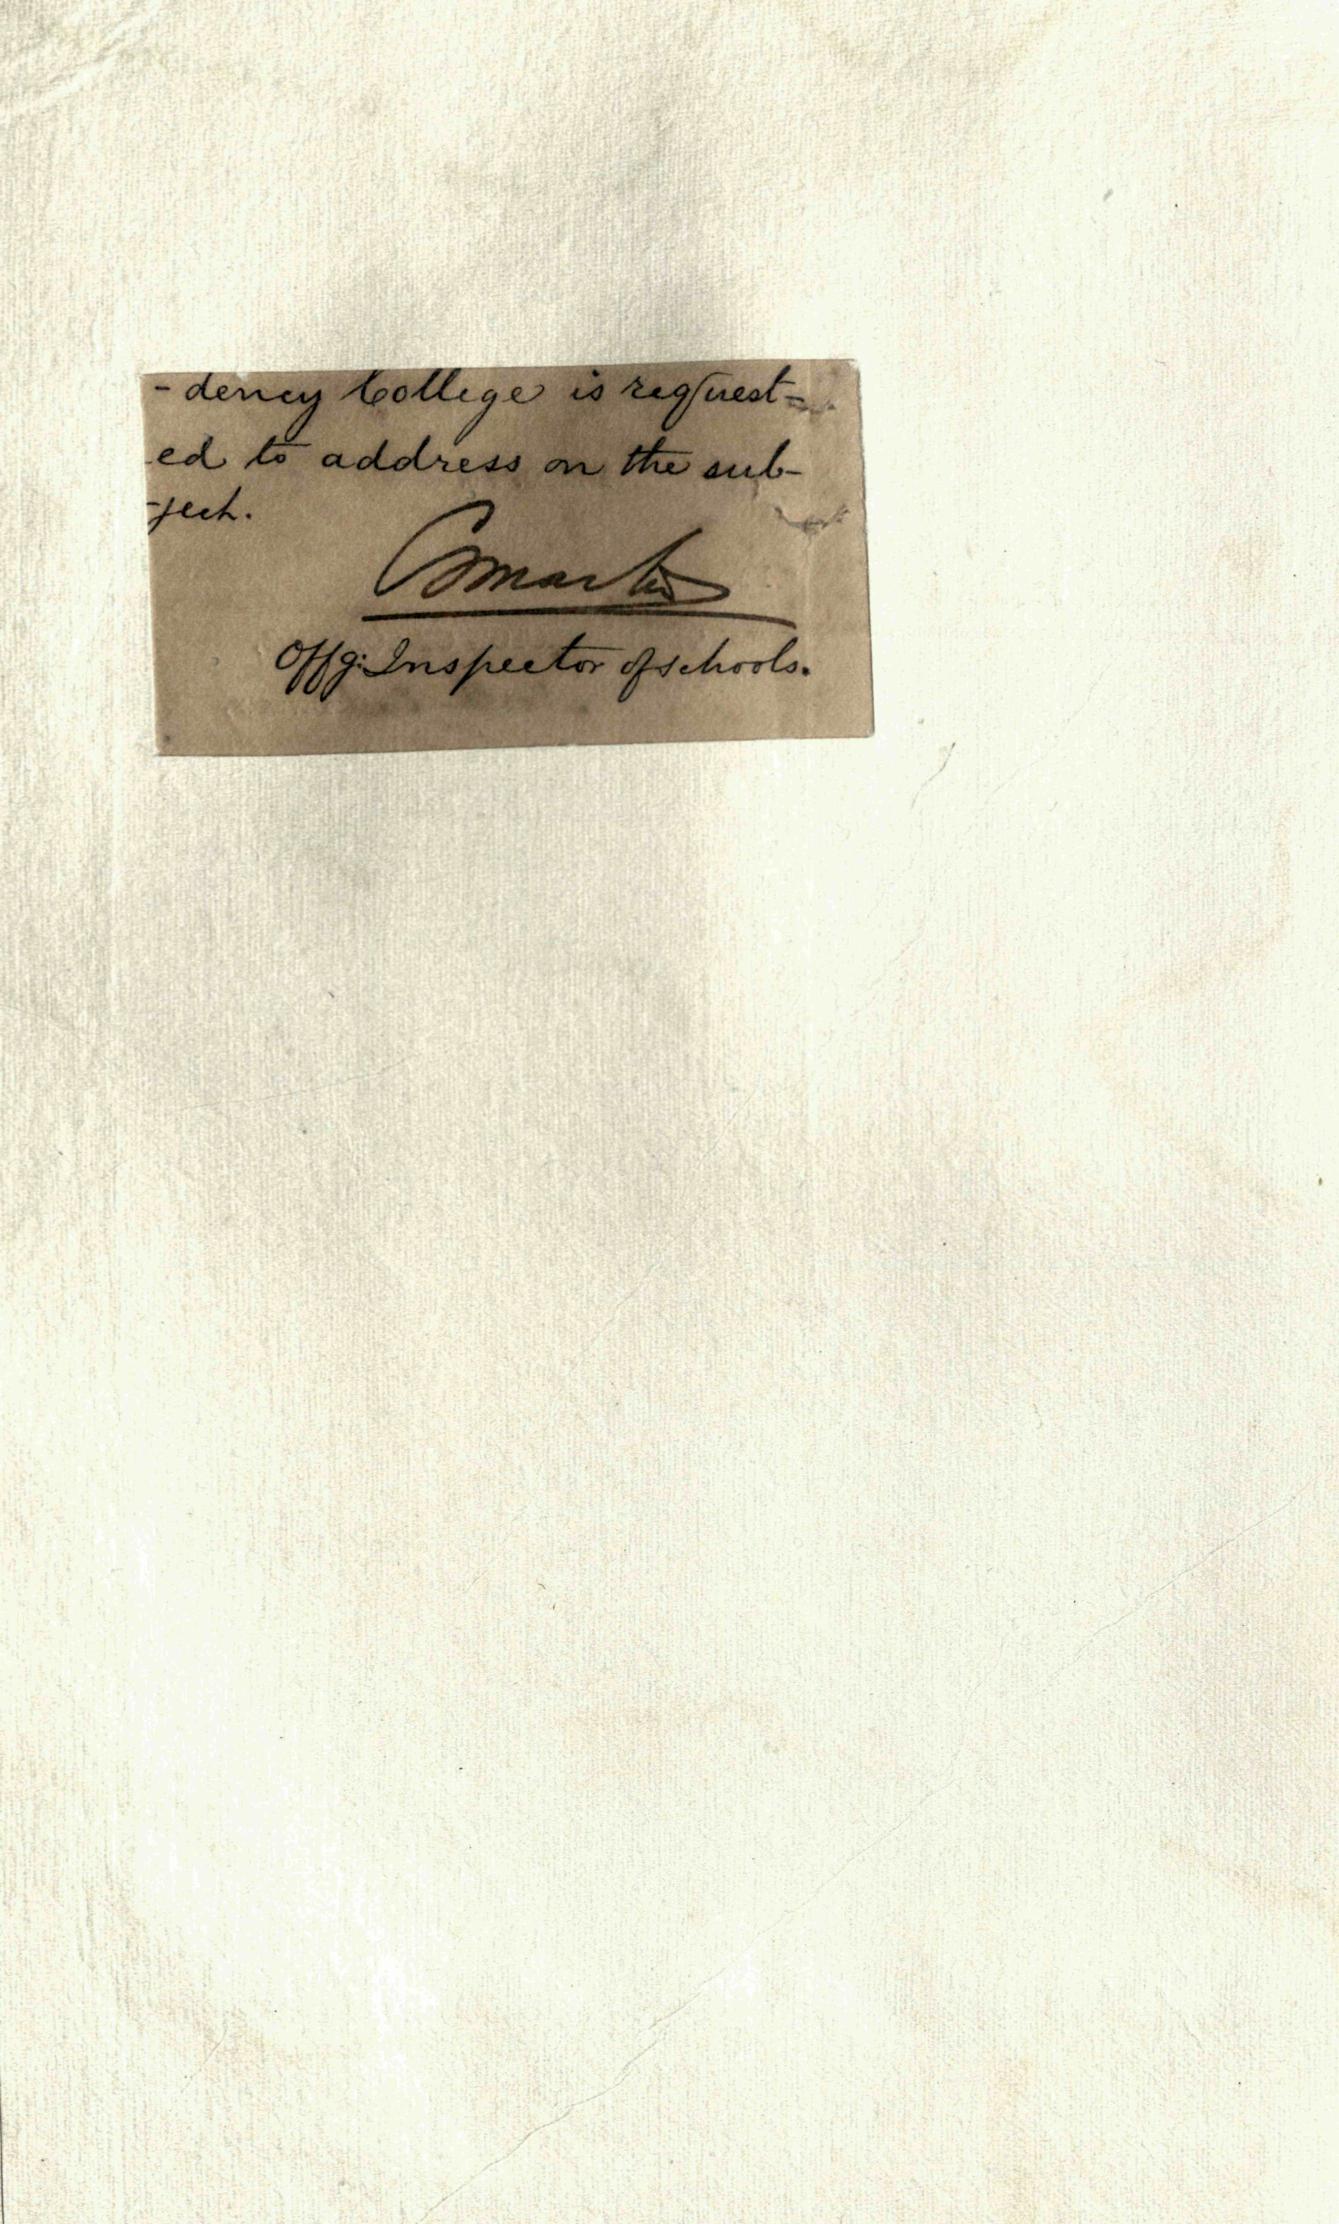 - dency College is request-
ed to address on the sub-
-ject.
CMartin
Offg: Inspector of schools.